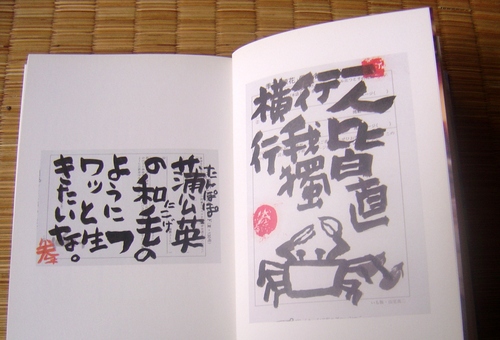 人皆直
行我獨
横行
たんぽぽ
蒲公英
にこげ
の和毛の
ようにフ
ワッと生
きたいな。